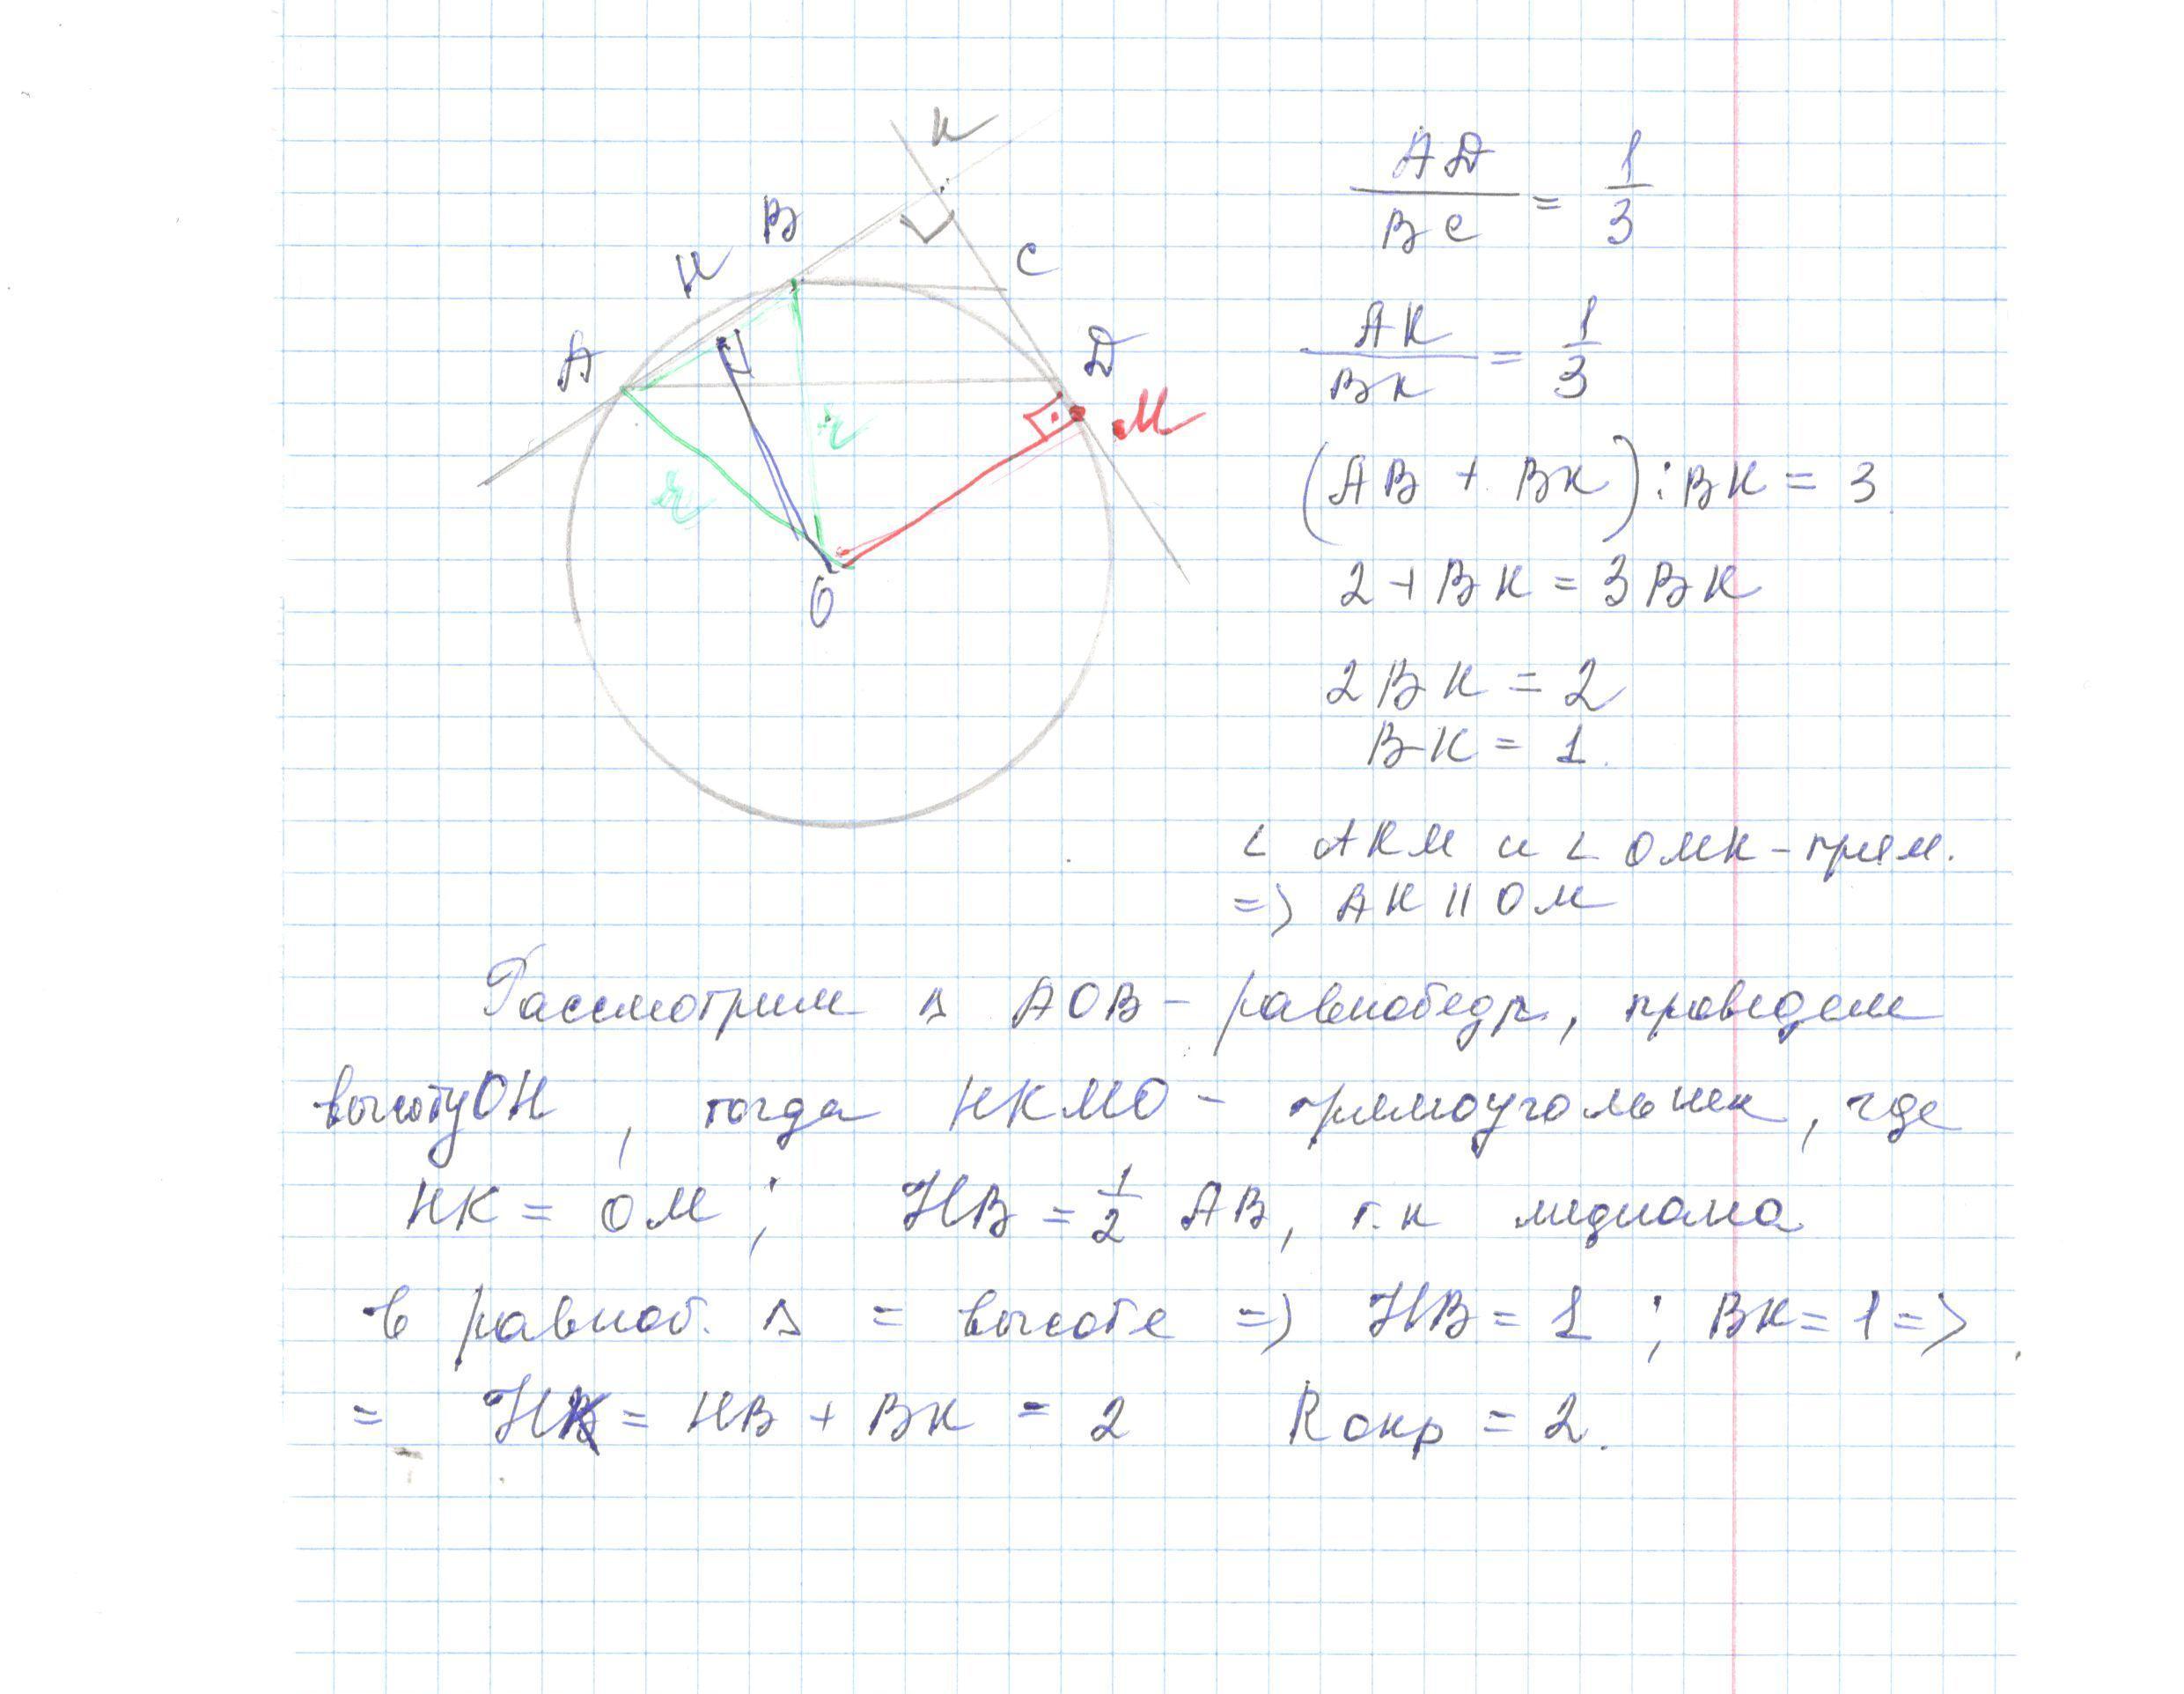 К
В
Н
С
А
D
М
r
r
О
AD/BC = 1/3
AK/BK = 1/3
(AB + BK) : BK = 3
2 + BK = 3BK
2BK = 2
BK = 1.
∠ AKM и ∠ OMK – прям.
=> AK || OM
Рассмотрим Δ AOB – равнобедр, проведем
высоту OH, тогда HKMO – прямоугольник, где
HK = OM; HB = 1/2 AB, т.к медиана
в равноб. Δ = высоте => HB = 1; BK = 1 =>
= HK = HB + BK = 2 R окр = 2.